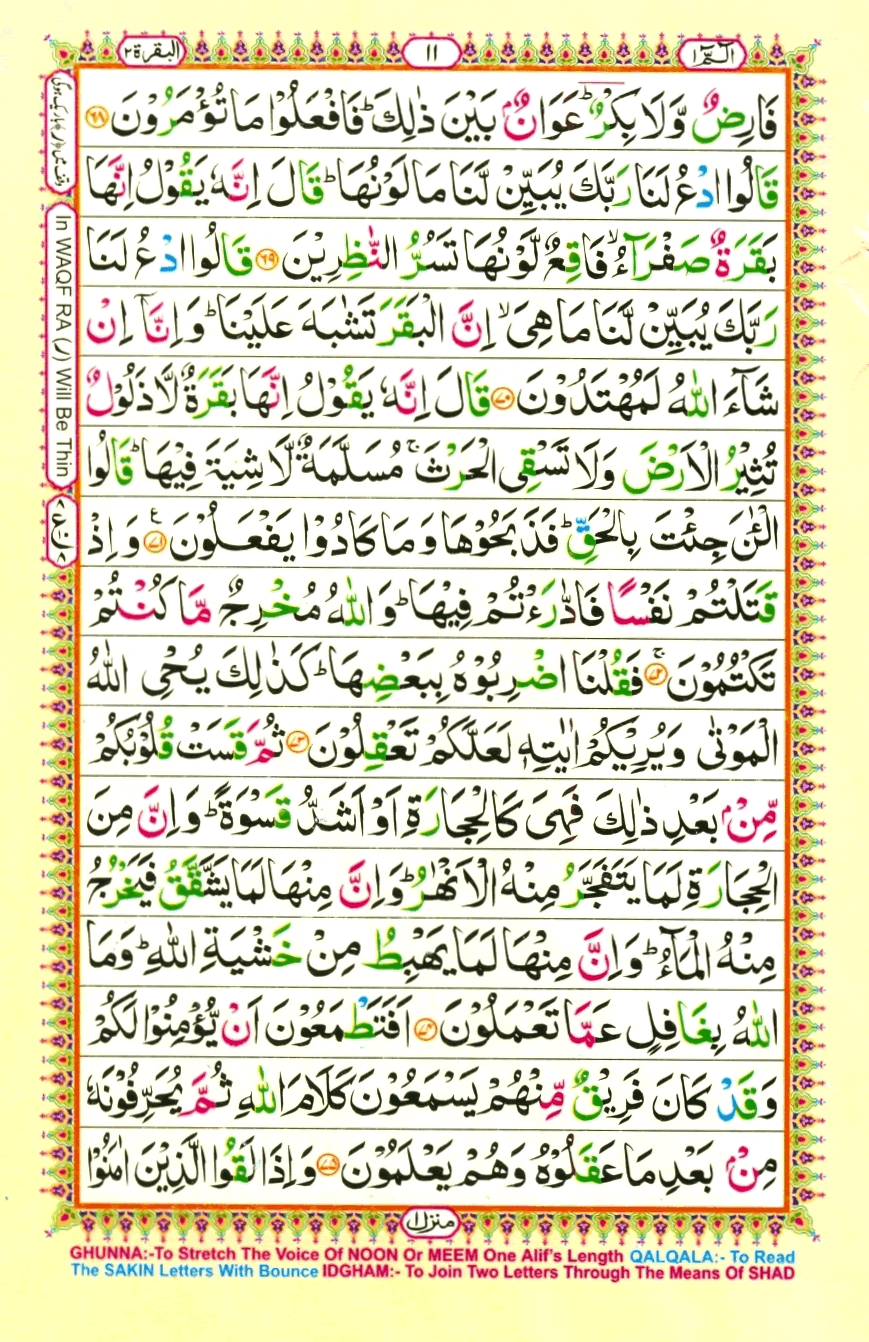 الٓـمّٓ ١
١١
البقرة ٢
فَارِضٌ وَّلَا بِكْرٌ ؕ عَوَانٌۢ بَيْنَ ذٰلِكَ ؕ فَافْعَلُوْا مَا تُؤْمَرُوْنَ ﴿۶۸﴾
قَالُوا ادْعُ لَنَا رَبَّكَ يُبَيِّنْ لَّنَا مَا لَوْنُهَا ؕ قَالَ اِنَّهٗ يَقُوْلُ اِنَّهَا
بَقَرَةٌ صَفْرَآءُ ۙ فَاقِعٌ لَّوْنُهَا تَسُرُّ النّٰظِرِيْنَ ﴿۶۹﴾ قَالُوا ادْعُ لَنَا
رَبَّكَ يُبَيِّنْ لَّنَا مَا هِىَ ۙ اِنَّ الْبَقَرَ تَشٰبَهَ عَلَيْنَا ؕ وَاِنَّاۤ اِنْ
شَآءَ اللّٰهُ لَمُهْتَدُوْنَ ﴿۷۰﴾ قَالَ اِنَّهٗ يَقُوْلُ اِنَّهَا بَقَرَةٌ لَّا ذَلُوْلٌ
تُثِيْرُ الْاَرْضَ وَلَا تَسْقِى الْحَرْثَ ۚ مُسَلَّمَةٌ لَّا شِيَةَ فِيْهَا ؕ قَالُوا
الْـٰٔنَ جِئْتَ بِالْحَقِّ ؕ فَذَبَحُوْهَا وَمَا كَادُوْا يَفْعَلُوْنَ ﴿۷۱﴾ ع وَاِذْ
قَتَلْتُمْ نَفْسًا فَادّٰرَءْتُمْ فِيْهَا ؕ وَاللّٰهُ مُخْرِجٌ مَّا كُنْتُمْ
تَكْتُمُوْنَ ۚ ﴿۷۲﴾ فَقُلْنَا اضْرِبُوْهُ بِبَعْضِهَا ؕ كَذٰلِكَ يُحْىِ اللّٰهُ
الْمَوْتٰى وَيُرِيْكُمْ اٰيٰتِهٖ لَعَلَّكُمْ تَعْقِلُوْنَ ﴿۷۳﴾ ثُمَّ قَسَتْ قُلُوْبُكُمْ
مِّنْۢ بَعْدِ ذٰلِكَ فَهِىَ كَالْحِجَارَةِ اَوْ اَشَدُّ قَسْوَةً ؕ وَاِنَّ مِنَ
الْحِجَارَةِ لَمَا يَتَفَجَّرُ مِنْهُ الْاَنْهٰرُ ؕ وَاِنَّ مِنْهَا لَمَا يَشَّقَّقُ فَيَخْرُجُ
مِنْهُ الْمَآءُ ؕ وَاِنَّ مِنْهَا لَمَا يَهْبِطُ مِنْ خَشْيَةِ اللّٰهِ ؕ وَمَا
اللّٰهُ بِغَافِلٍ عَمَّا تَعْمَلُوْنَ ﴿۷۴﴾ اَفَتَطْمَعُوْنَ اَنْ يُّؤْمِنُوْا لَكُمْ
وَقَدْ كَانَ فَرِيْقٌ مِّنْهُمْ يَسْمَعُوْنَ كَلَامَ اللّٰهِ ثُمَّ يُحَرِّفُوْنَهٗ
مِنْۢ بَعْدِ مَا عَقَلُوْهُ وَهُمْ يَعْلَمُوْنَ ﴿۷۵﴾ وَاِذَا لَقُوا الَّذِيْنَ اٰمَنُوْا
In WAQF RA (ر) Will Be Thin
منزل ١
GHUNNA:-To Stretch The Voice Of NOON Or MEEM One Alif's Length QALQALA:- To Read
The SAKIN Letters With Bounce IDGHAM:- To Join Two Letters Through The Means Of SHAD